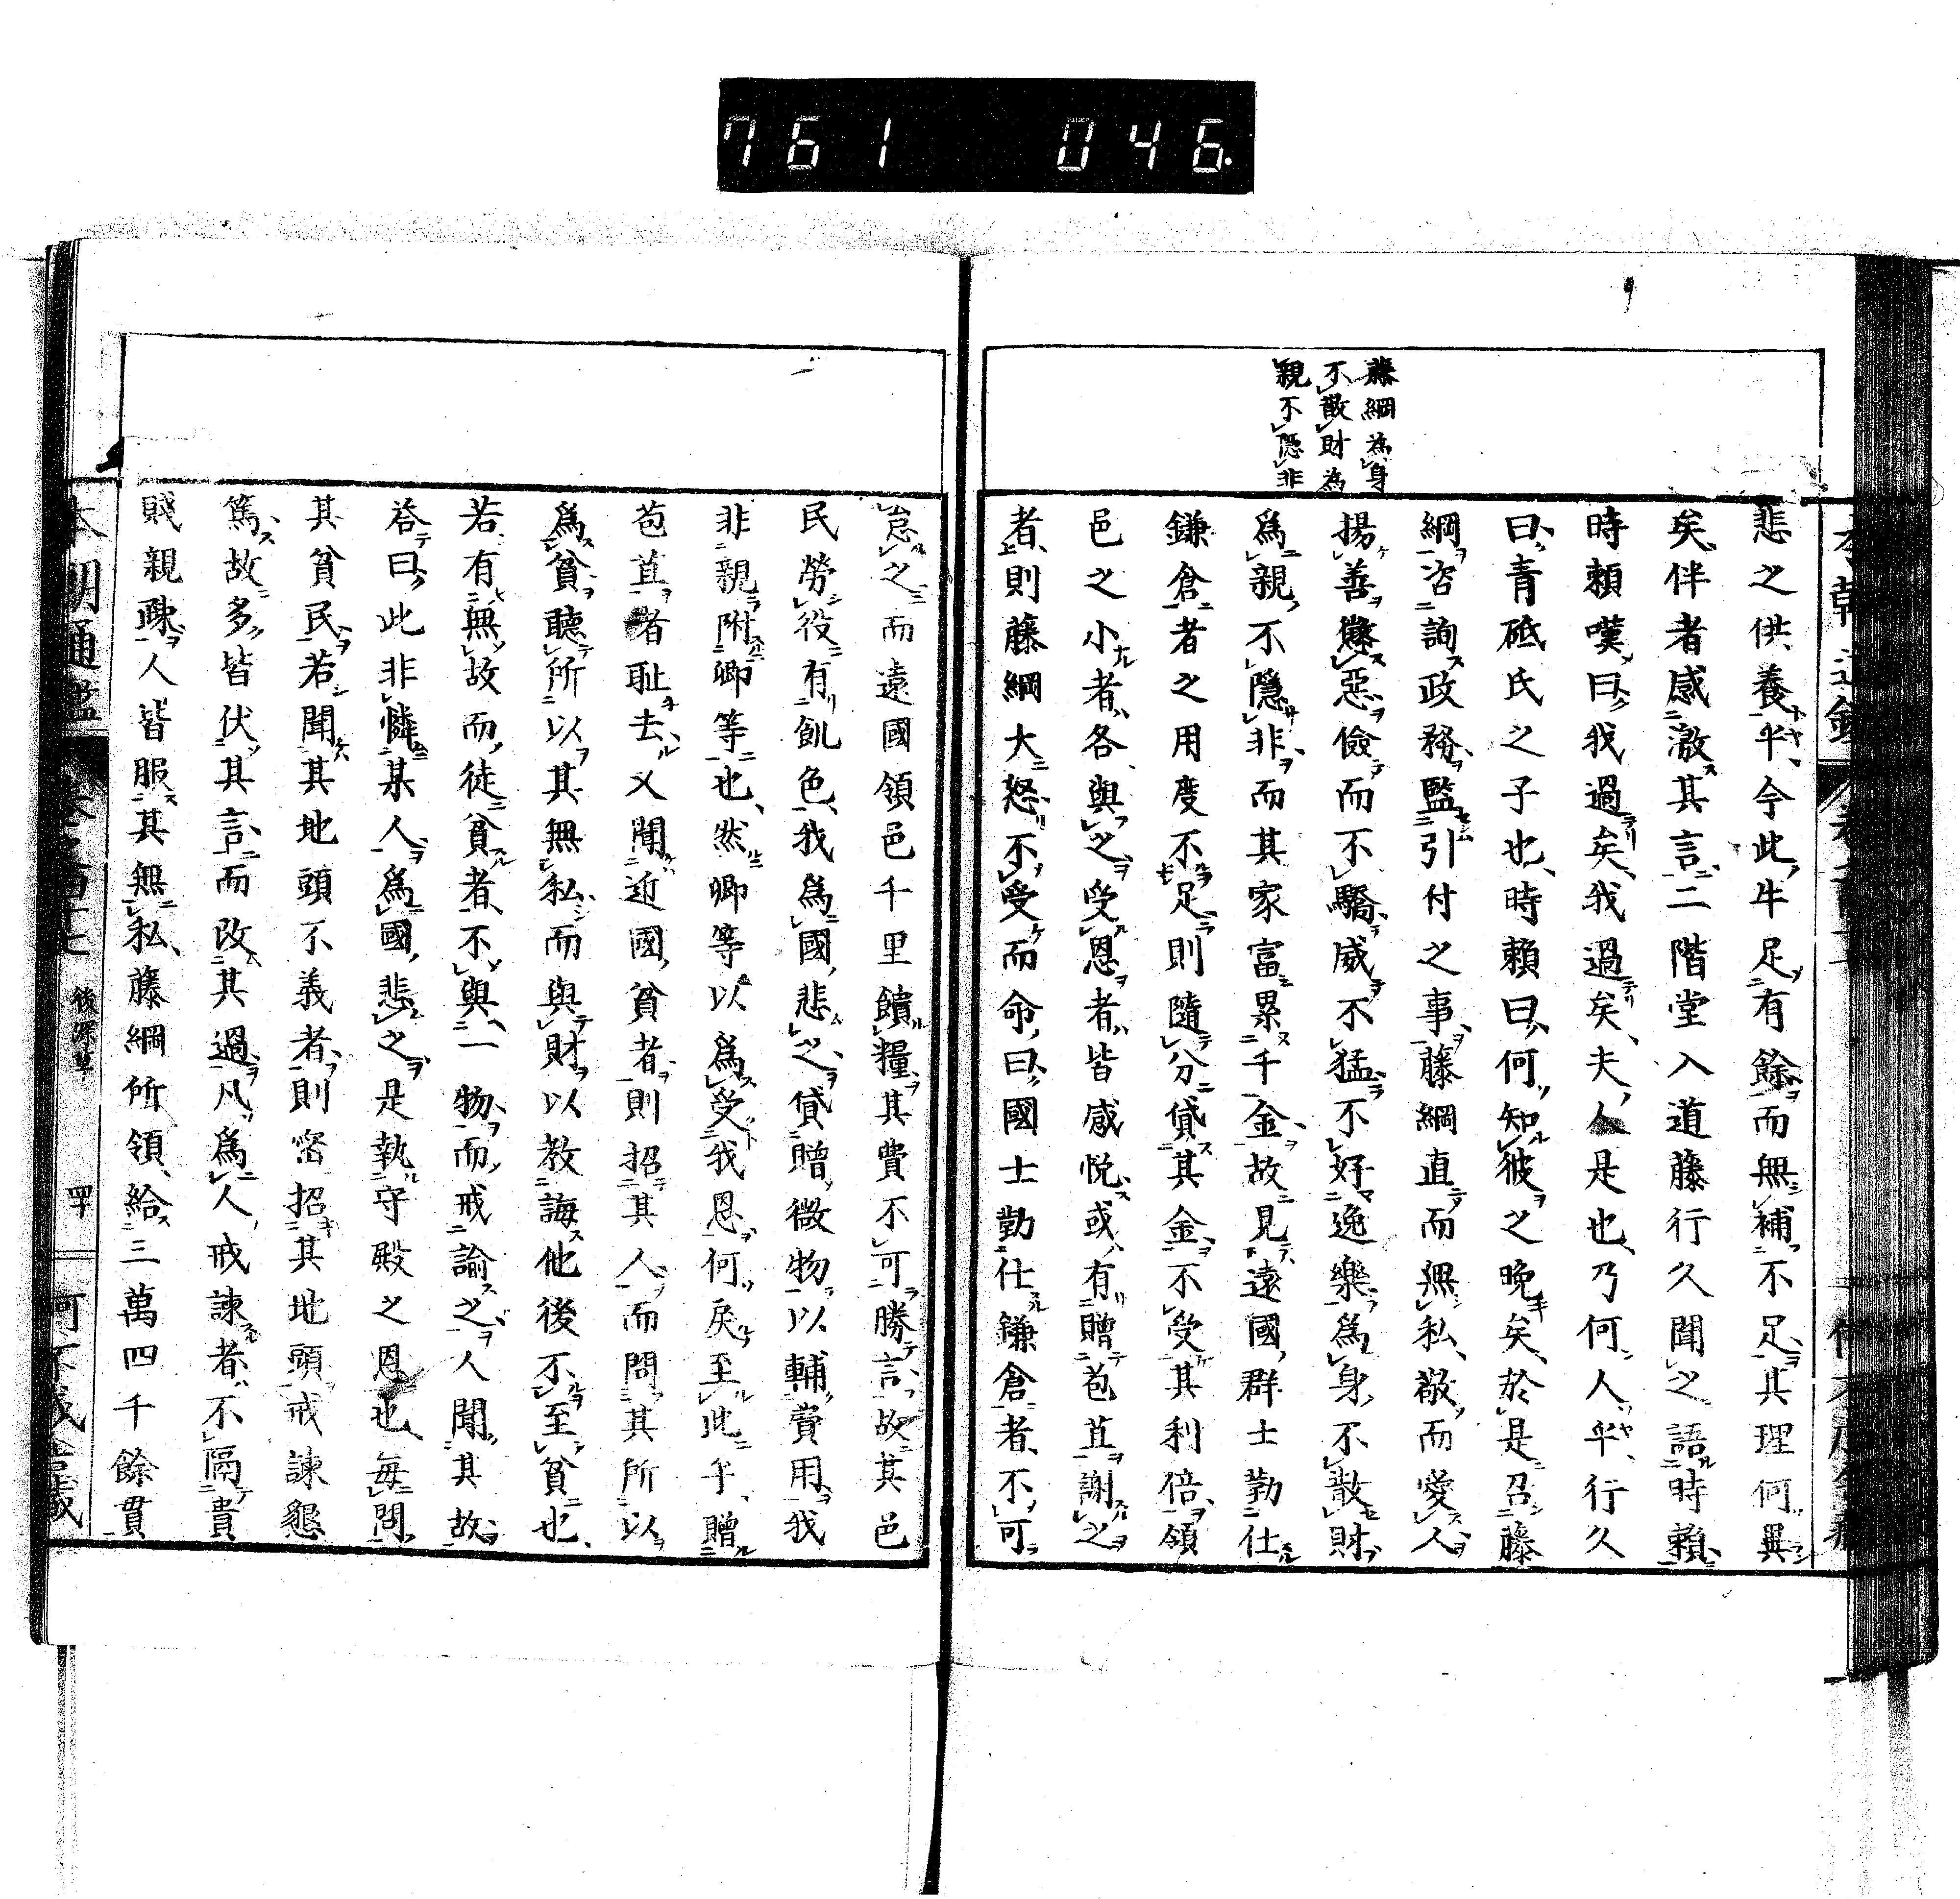 761 046
藤綱為身
不散財為
親不隱非
悲之供養乎今此牛足有餘而無補不足其理何異
矣伴者感激其言二階堂入道藤行久聞之語時賴
時賴嘆曰我過矣我過矣夫人是也乃何人乎行久
曰青砥氏之子也時賴曰何知彼之晚矣於是召藤
綱咨詢政務監引付之事藤綱直而無私敬而愛人
揚善懲惡儉而不驕威不猛不好逸樂爲身不散財
爲親不隱非而其家富累千金故見遠國群士勤仕
鎌倉者之用度不足則隨分貸其金不受其利倍領
邑之小者各與之受恩者皆感悦或有贈苞苴謝之
者則藤綱大怒不受而命曰國士勤仕鎌倉者不可
怠之而遠國領邑千里饋糧其費不可勝言故其邑
民勞役有飢色我爲國悲之貸贈微物以輔費用我
非親附卿等也然卿等以爲受我恩何戾至此乎贈
苞苴者耻去又聞近國貧者則招其人而問其所以
爲貧聽所以其無私而與財以教誨他後不至貧也
若有無故而徒貧者不與一物而戒諭之人聞其故
答曰此非憐某人爲國悲之是執守殿之恩也每問
其貧民若聞其地頭不義者則密招其地頭戒諫懇
篤故多皆伏其言而改其過凡爲人戒諫者不隔貴
賤親疎人皆服其無私藤綱所領給三萬四千餘貫
本朝通鑑 後深草 四十